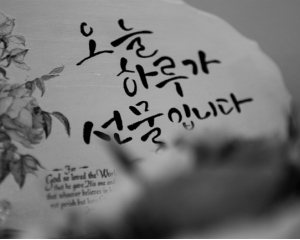 오늘
하루가
선물입니다
For
God so loved the World
that he gave His one and
that whoever believes in
not perish but have